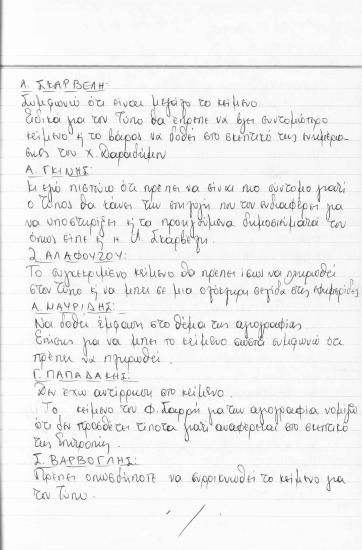 Λ. ΣΚΑΡΒΕΛΗ:
Συμφωνώ ότι είναι μεγάλο το κείμενο.
Ειδικά για τον Τύπο θα έπρεπε να βγει συντομώτερο
κείμενο ή το βάρος να δοθεί στο σκεπτικό της ενημέρω-
σης του χ. Παραδάμου
Α. ΓΚΙΝΗΣ:
Κι εγώ πιστεύω ότι πρέπει να είναι πιο σύντομο γιατί
ο Τύπος θα κάνει την επιλογή που τον ενδιαφέρει για
να υποστηρίξει ή τα προηγούμενα δημοσιεύματά του
όπως είπε η Λ. Σκαρβέλη.
Ζ. ΑΛΑΦΟΥΖΟΥ:
Το συγκεκριμένο κείμενο θα πρέπει ίσως να πληρωθεί
στον Τύπο ή να μπει σε μια ολόκληρη σελίδα στις εφημερίδες
Α. ΜΑΥΡΙΔΗΣ:
Να δοθεί έμφαση στο θέμα της αγιογραφίας
Επίσης για να μπει το κείμενο σωστά συμφωνώ ότι
πρέπει να πληρωθεί.
Γ. ΠΑΠΑΔΑΚΗΣ:
Δεν έχω αντίρρηση στο κείμενο.
Το κείμενο του Φ. για την αγιογραφία νομίζω
ότι δεν προσθέτει τίποτα γιατί αναφέρεται στο σκεπτικό
της Επιτροπής.
Σ. ΒΑΡΒΟΓΛΗΣ:
Πρέπει οπωσδήποτε να συρρικνωθεί το κείμενο για
τον Τύπο.